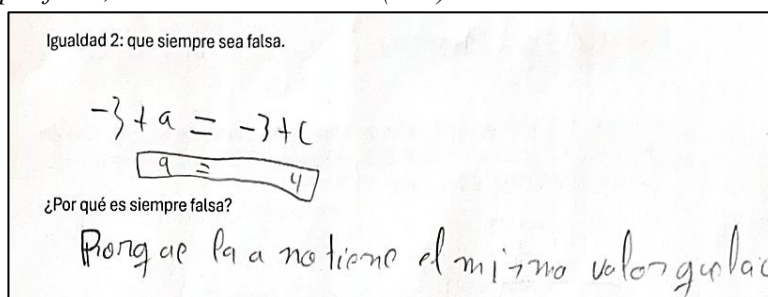 Igualdad 2: que siempre sea falsa.
-3 + a = -3 + c
a = 4
¿Por qué es siempre falsa?
Porqae la a no tiene el mismo valor que la c